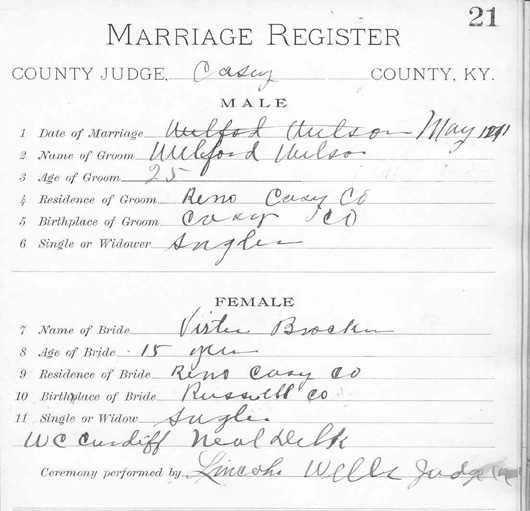 21
MARRIAGE REGISTER
COUNTY JUDGE, Casey COUNTY, KY.
MALE
1 Date of Marriage Wilford Wilson May
2 Name of Groom Wilford Wilson
3 Age of Groom 25
4 Residence of Groom Reno Casy Co
5 Birthplace of Groom Casy Co
6 Single or Widower Single
FEMALE
7 Name of Bride
8 Age of Bride 15 yrs
9 Residence of Bride Reno Casy Co
10 Birthplace of Bride Russell Co
11 Single or Widow Single
WC Cundiff Neal Delk
Ceremony performed by Lincoln Wells Judge